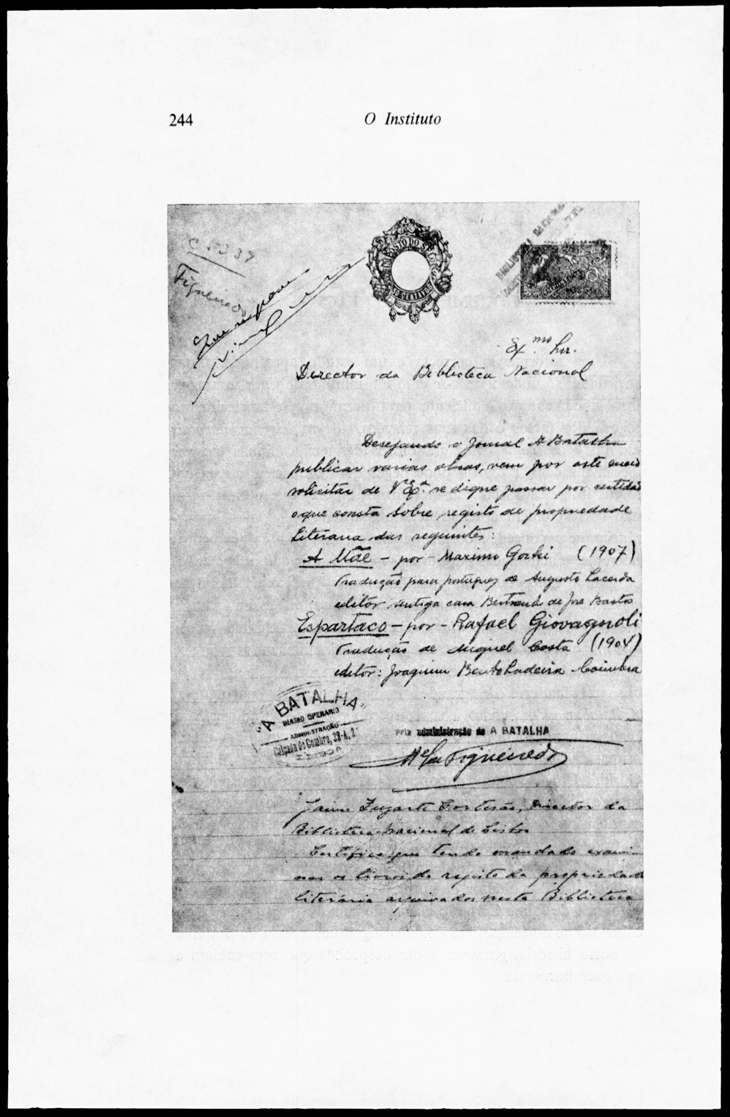 244
O Instituto
Figueiredo
Ex.mo Snr.
Director da Biblioteca Nacional
Desejando o Jornal A Batalha
publicar varias obras, vem por este meio
solicitar de V. Ex.a se digne passar por certidão
o que consta sobre registo de propriedade
literaria das seguintes:
A Mãe - por - Maximo Gorki (1907)
tradução para portuguez de Augusto Lacerda
editor antiga casa Bertrand de José Bastos
Espartaco - por - Rafael Giovagnoli
tradução de Miguel Costa (1904)
editor: Joaquim Bento Ladeira Coimbra
"A BATALHA"
DIARIO OPERARIO
ADMINISTRAÇÃO
Calçada do Combro, 38-A, 2.º
LISBOA
Pela administração de A BATALHA
Figueiredo
Jaime Zuzarte Cortesão, Director da
Biblioteca Nacional de Lisboa
Certifico que tendo mandado exami-
nar os livros de registo da propriedade
literária arquivados nesta Biblioteca